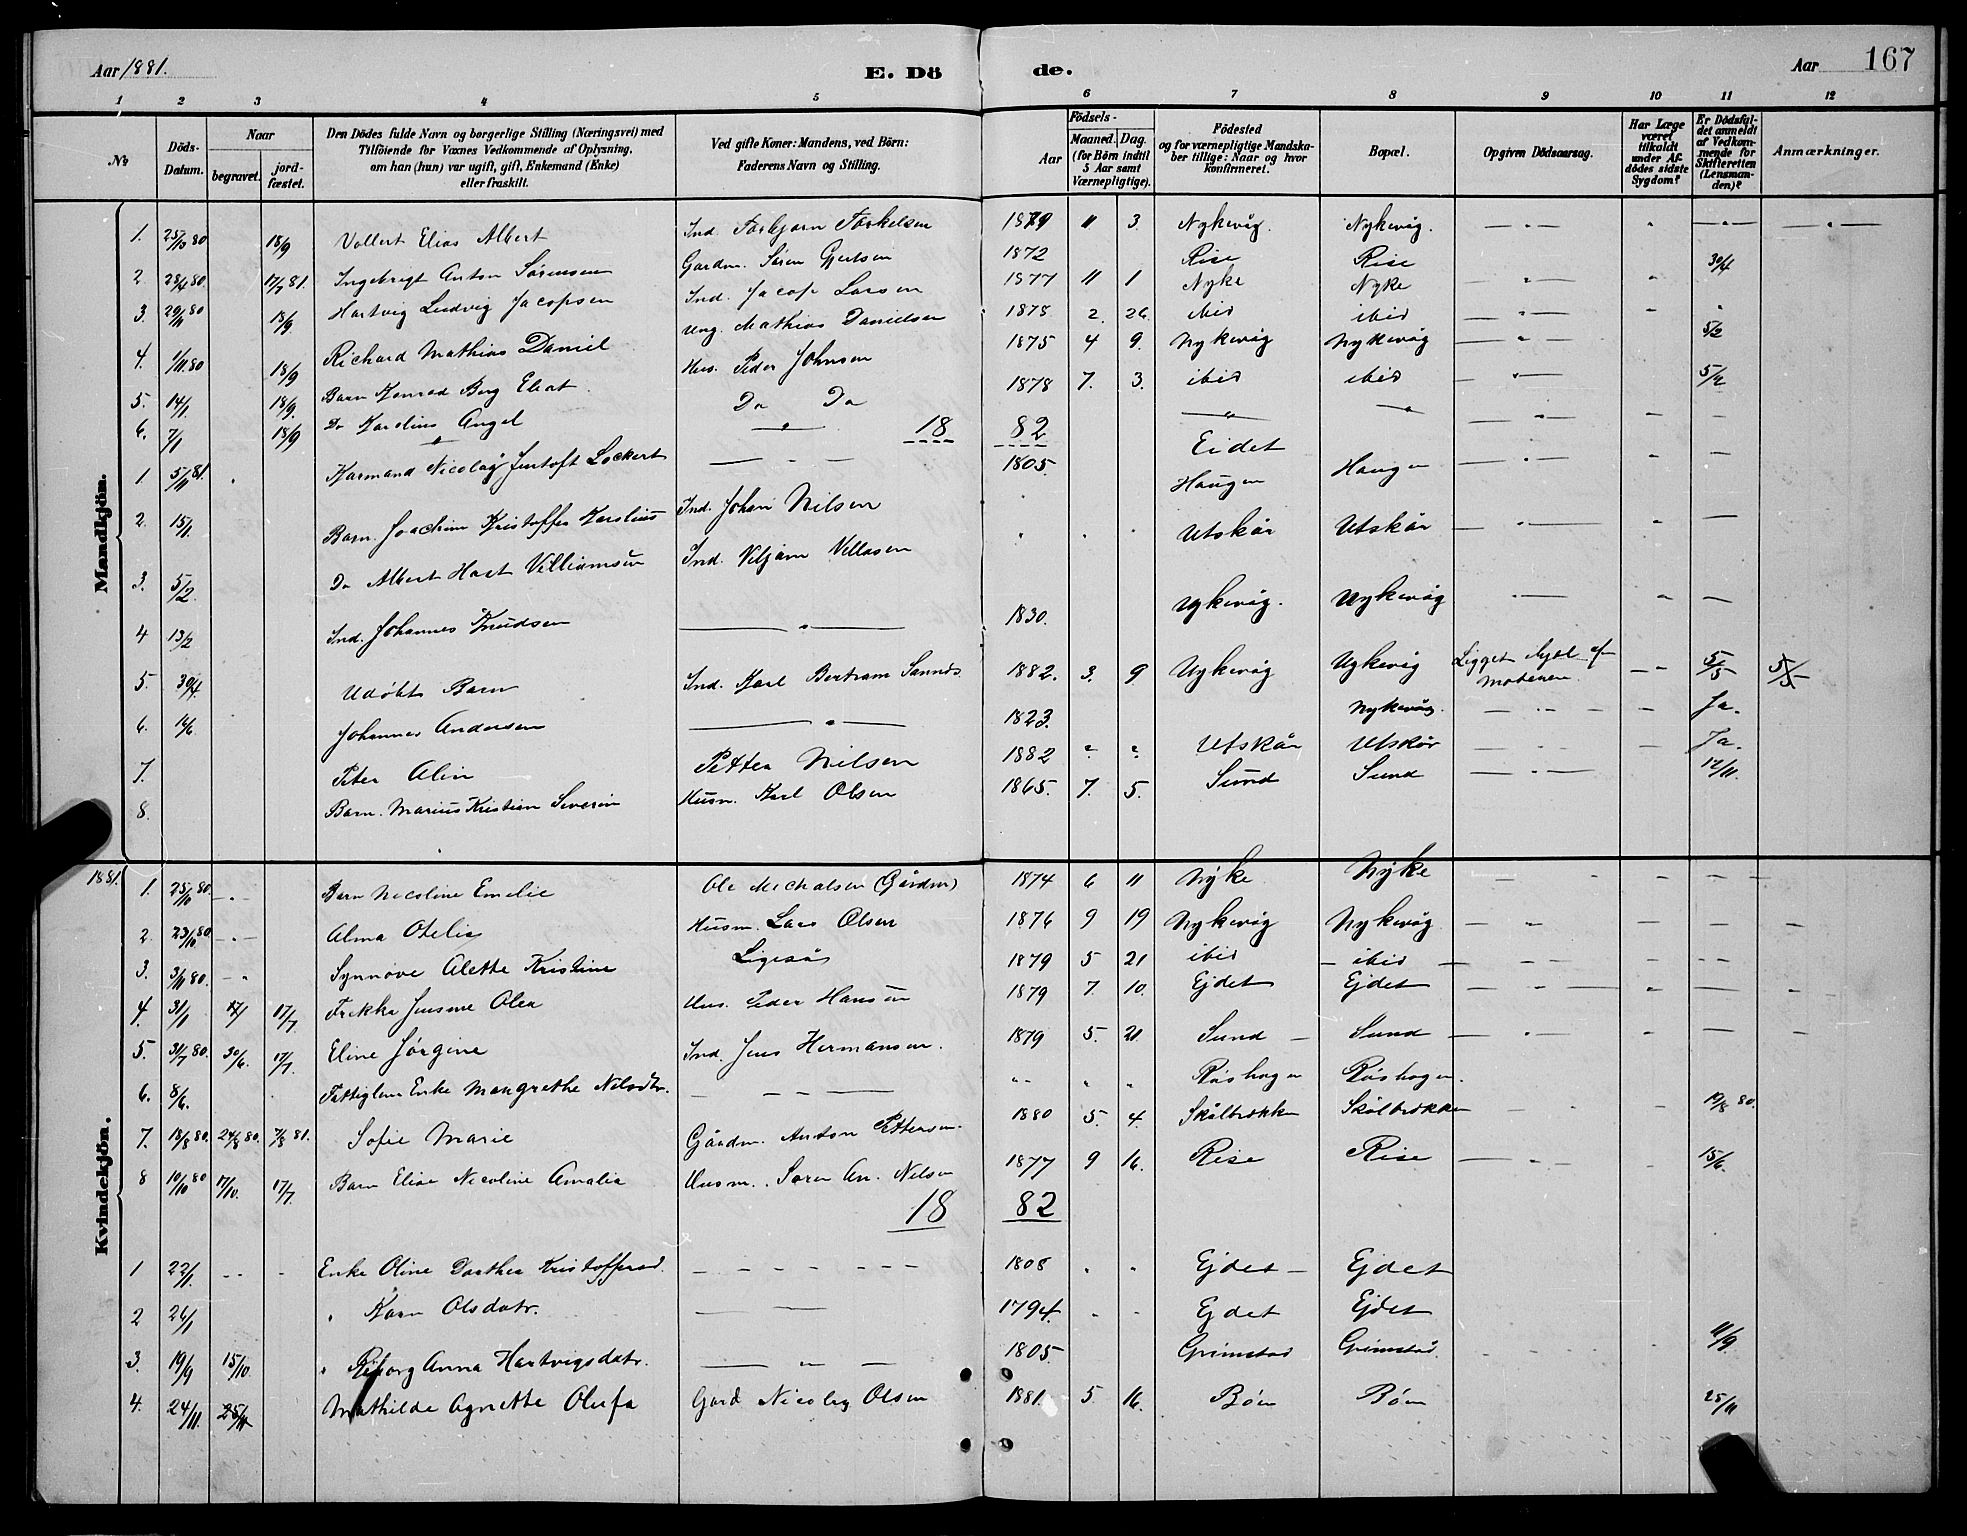 Aar 1881. E. Dö de. Aar 167
1 2 3 4 5 6 7 8 9 10 11 12
No Döds-Datum. Naar begravet. jord-fæstet. Den Dödes fulde Navn og borgerlige Stilling (Næringsvei) med Tilföiende for Voxnes Vedkommende af Oplysning, om han (hun) var ugift, gift, Enkemand (Enke) eller fraskilt. Ved gifte Koner: Mandens, ved Börn: Faderens Navn og Stilling. Födsels- Aar Maaned. Dag. (for Börn indtil 5 Aar samt Værnepligtige). Födested og for værnepligtige Mandskaber tillige: Naar og hvor konfirmeret. Bopæl. Opgiven Dödsaarsag. Har Læge været tilkaldt under Afdödes sidste Sygdom? Er Dödsfaldet anmeldt af Vedkommende for Skifteretten (Lensmanden)? Anmærkninger.
Mandkjön.
1. 25/10 80 18/9 Vollert Elias Albert Ind. Torbjørn Torkelsen 1879 11 3. Nykevåg. Nykevåg. — " — " — " — " —
2 28/4 80. 17/7 81. Ingebrigt Anton Sørensen Gardm. Søren Gjertsen 1872 Rise Rise 30/4
3. 29/11 80 18/9. Hartvig Ludvig Jacopsen Ind. Jacop Larsen 1877 11 1 Nyke Nyke — " — - "
4. 1/11.80 18/9 Richard Mathias Daniel Ung. Mathias Danielsen 1878 2. 26. ibid ibid — " — - 5/2
5. 14/1. 18/9. Barn Konrad Berg Eliat. Hus. Peder Johnsen 1875 4 9. Nykevåg Nykevåg — " — -
6. 7/1 18/9 Do Karolius Angel Do Do 1878 7. 3. ibid ibid — " — 5/2
— " — 18 82 — " — " — " — - —
1 5/11 81. Karmand Nicolay Jentoft Lockert — - — 1805. Eidet Haugen Haugen — " — - —
2. 15/1. Barn. Joachim Kristoffer Karolius Ind. Johan Nilsen Utskår Utskår — " — - —
3. 5/2 Do Albert Hart Villiamsen Ind. Viljam Villasen
4 13/2 Ind. Johannes Knudsen — " — 1830. Nykevåg. Nykevåg — " — - —
5. 30/4 Udøbt Barn Ind. Karl Bertram Sannds. 1882. 3. 9 Nykevåg Nykevåg Ligget ihjel af moderen — - 5/5 5/5
6. 14/6 Johannes Andersen — " — 1823. Nykevåg. — - — — Ja.
7. Peter Alin Petter Nilsen 1882 " " Utskår Utskår — - — — Ja.
8. Barn. Marius Kristian Severin Husm. Karl Olsen 1865. 7. 5. Sund Sund — - — 12/11.
Kvindekjön.
1881. 1. 25/10 80. — " — Barn Nicoline Emelie Ole Michalsen (Gårdm) 1874 6 11 Nyke Nyke — - — - — —
2. 23/10 80 — " — Alma Otelie Husm. Lars Olsen 1876 9 19 Nykevåg Nykevåg. — - — — —
3. 3/11 80. — " Synnøve Alette Kristine Ligeså 1879 5 21 ibid — ibid — — - — — - -
4. 31/1 17/7. Frekka Jensine Olea Hus. Peder Hansen 1879 7. 10. Ejdet Ejdet — - — - — -
5. 31/7 80. 30/6. 17/7. Eline Jørgine Ind. Jens Hermansen. 1879 5. 21. Sund — Sund — - — - — —
6. 8/6. Fattiglem Enke Mangrethe Nilsdtr. — — — — " " " " Røshagen Røshagen.
7. 18/8 80. 24/8 80. 7/8 81. Sofie Marie Gårdm. Anton Pettersen. 1880 5. 4. Skålbrækka Skålbrækka — - — - 19/8 80.
8 10/10 80 17/10. 17/7 Barn Elise Nicoline Amalia Husm. Søren An. Nilsen 1877 9 16. Rise Rise — - - - 15/6.
18 82
1 22/1. - - - Enke Oline Dorthea Kristoffersd. — — — — 1808 " " Ejdet — Ejdet
2 26/1 " Karn Olsdatr. — — 1794. " " Ejdet Ejdet
3. 19/9 15/10. " Anna Hartvigsdatr. — " — 1805. Grimstad Grimstad. - - - - - 11/9
4. 24/11. 25/11 Mathilde Agnette Olufa Gård Nicolay Olsen 1881. 5 16. Bøen Bøen 25/11